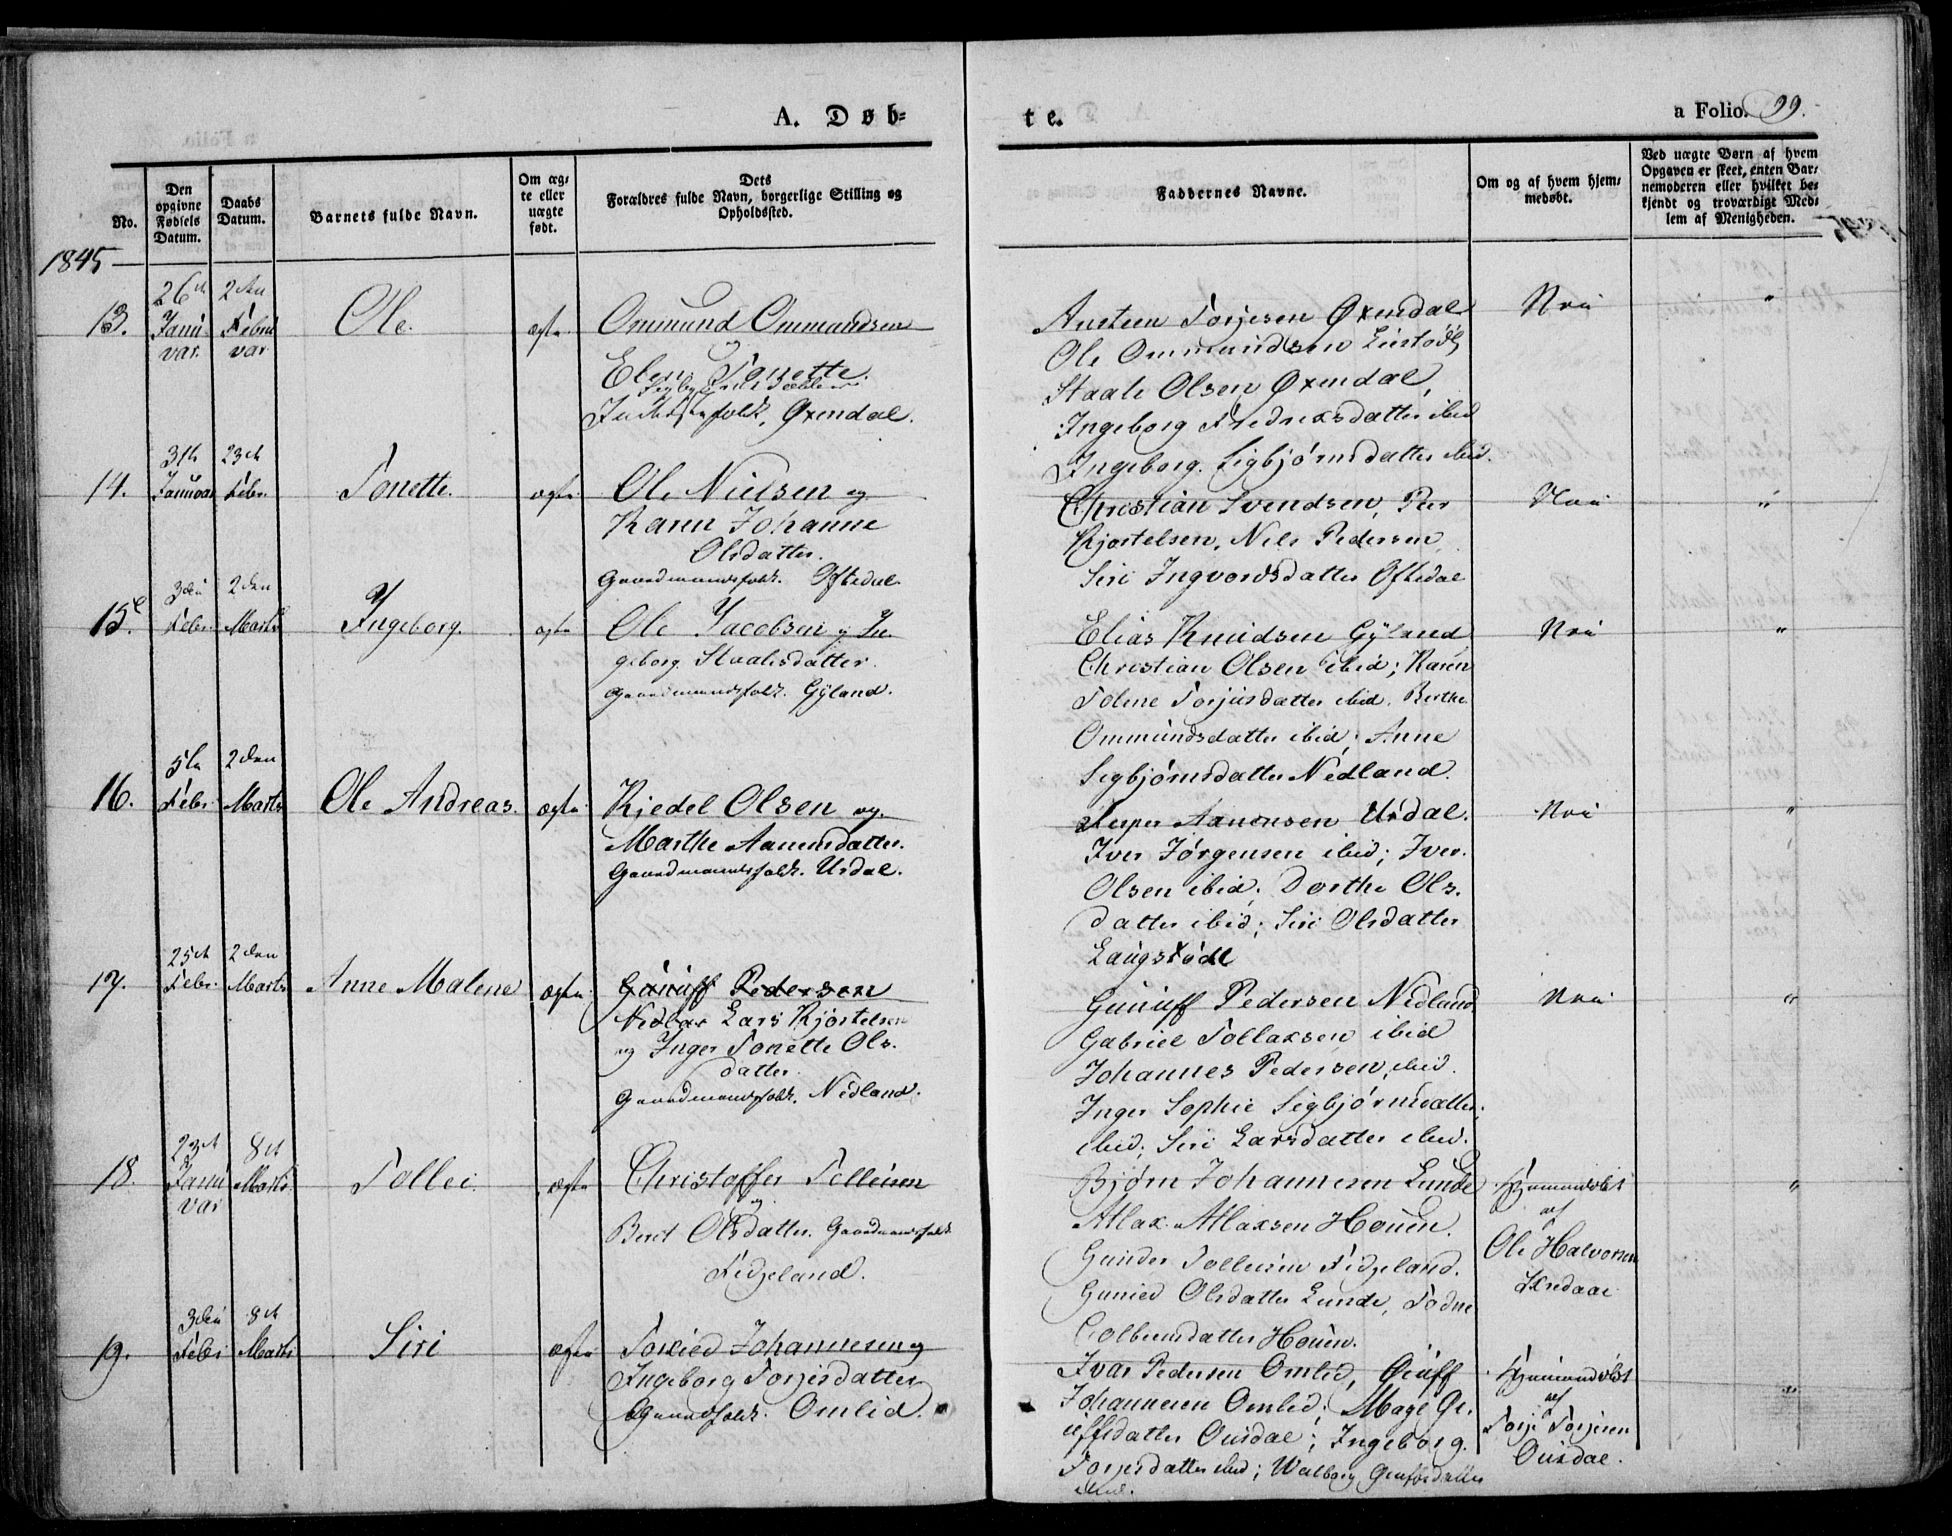 A. Døb-
te.
a Folio. 99.
No.
Den opgivne Fødsels Datum.
Daabs Datum.
Barnets fulde Navn.
Om æg-
te eller
uægte
født.
Dets
Forældres fulde Navn, borgerlige Stilling og
Opholdssted.
Faddernes Navne.
Om og af hvem hjem-
medøbt.
Ved uægte Børn af hvem
Opgaven er skeet, enten Bar-
nemoderen eller hvilket be-
kjendt og troværdigt Med-
lem af Menigheden.
1845
13.
26de
Janu-
var.
2den
Febru
var
Ole.
ægte
Ommund Ommundsen
Elen Tonette
Sigbjørnsdatter
folk, Øxendal.
Austeen Torjesen Øxendal
Ole Ommundsen
Staale Olsen Øxendal,
Ingeborg Fredriksdatter ibid
Ingeborg Sigbjørnsdatter ibid.
Nei
"
14.
31te
Januar
23de
Febr.
Tonette.
ægte
Ole Nielsen og
Karen Johanne
Olsdatter.
Gaardmandsfolk. Oftedal.
Christian Svendsen, Peer
Kjostelsen, Nils Pedersen,
Siri Ingvordsdatter Oftedal
Nei
"
15.
3die
Febr.
2den
Marts
Ingeborg.
ægte
Ole Jacobsen og In
geborg Staalesdatter.
Gaardmandsfolk. Gyland.
Elias Knudsen Gyland,
Christian Olsen ibid; Karen
Tolene Torjusdatter ibid. Berthe
Ommundsdatter ibid; Anne
Sigbjørnsdatter Nedland.
Nei
"
16.
5te
Febr.
2den
Marts
Ole Andreas.
ægte
Kjedel Olsen og
Marthe Aanensdatter.
Gaardmandsfolk. Urdal.
Jesper Aanensen Urdal.
Iver Jørgensen ibid; Iver
Olsen ibid; Dorthe Ols-
datter ibid; Siri Olsdatter
Laugstødl
Nei
"
17.
25de
Febr.
2den
Marts
Anne Malene
ægte
Gunuff Pedersen
Nedlan Lars Kjostelsen
og Inger Tonette Ols-
datter.
Gaardmandsfolk. Nedland.
Gunuff Pedersen Nedland.
Gabriel Tollaksen ibid
Johannes Pedersen, ibid.
Inger Sophie Sigbjørnsdatter
ibid; Siri Larsdatter ibid.
Nei
"
18.
23de
Janu
var
8de
Marts
Tollei.
ægte
Christoffer Tolleisen
og
Berit Olsdatter. Gaardmandsfolk
Fidjeland.
Bjørn Johannesen Lunde
Atlax Atlaxsen Houen.
Gunder Tolleisen Fidjeland.
Gunild Olsdatter Lunde, Todne
datter Houen.
Hjemmedøbt
af
Ole Halvorsen
"
19.
3die
Febr
8de
Marts
Siri
ægte
Torkied Johannesen og
Ingeborg Torjesdatter
Gaardfolk. Omlid.
Ivar Pedersen Omlid, Griuff
Johannesen Omlid; Mage Gr.
iuffsdatter Ousdal; Ingeborg
Torjesdatter ibid; Walborg Griufsdatter
ibid.
Hjemmedøbt
af
Torje Torjesen
Ousdal.
"